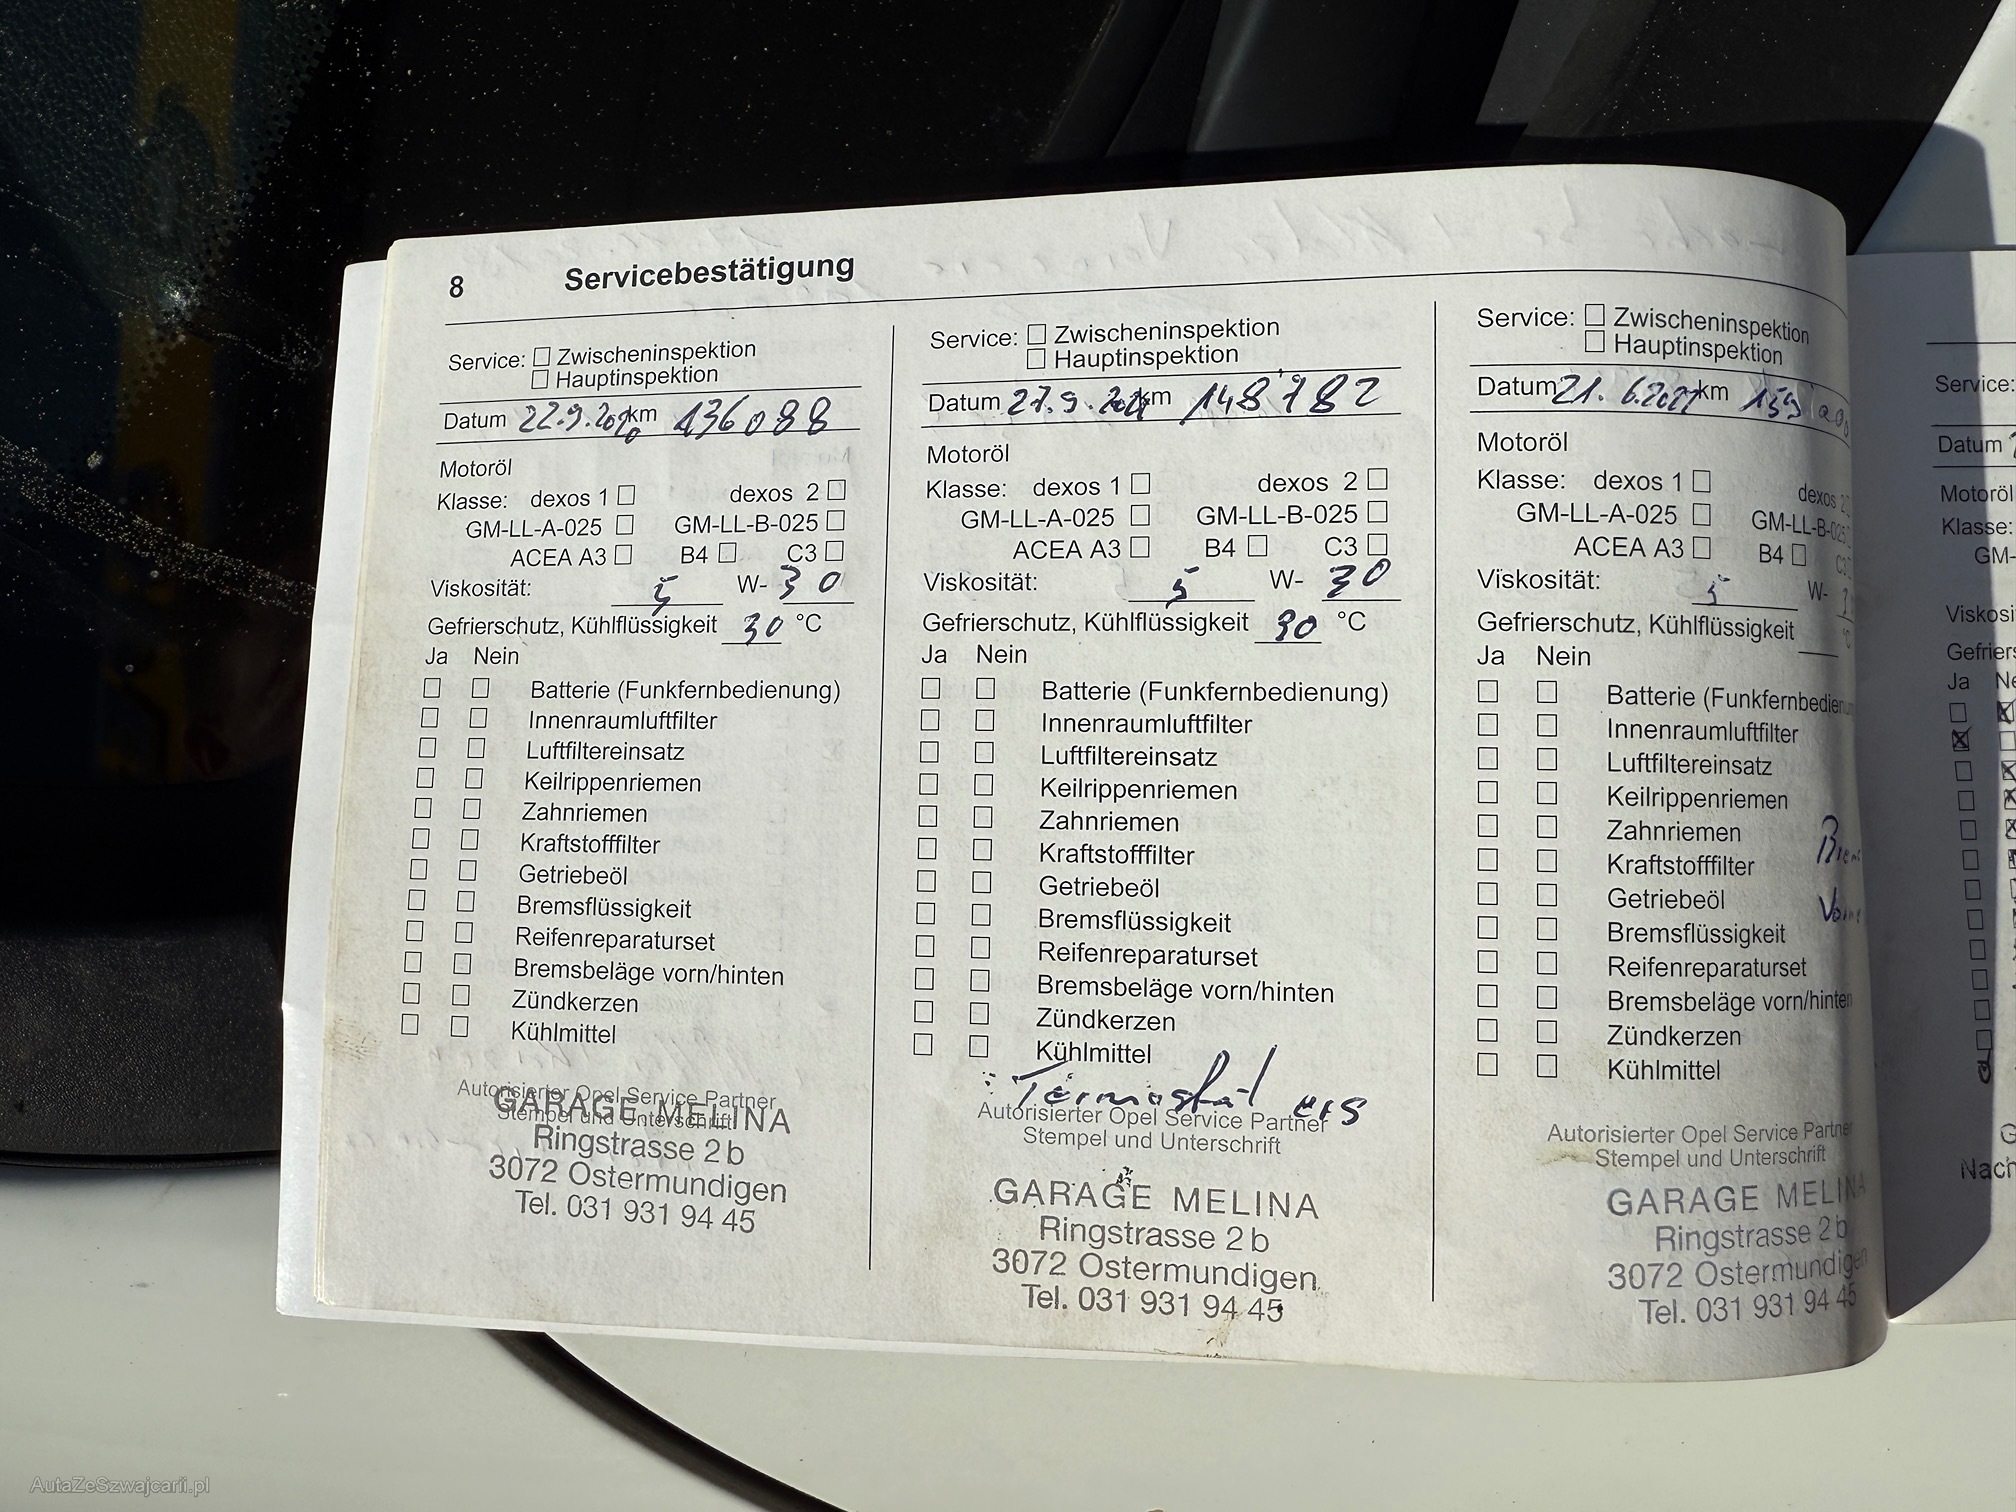 8 Servicebestätigung
Service: Zwischeninspektion
Hauptinspektion
Datum 22.9.2020 km 136088
Motoröl
Klasse: dexos 1 dexos 2
GM-LL-A-025 GM-LL-B-025
ACEA A3 B4 C3
Viskosität: 5 W- 30
Gefrierschutz, Kühlflüssigkeit 30 °C
Ja Nein
Batterie (Funkfernbedienung)
Innenraumluftfilter
Luftfiltereinsatz
Keilrippenriemen
Zahnriemen
Kraftstofffilter
Getriebeöl
Bremsflüssigkeit
Reifenreparaturset
Bremsbeläge vorn/hinten
Zündkerzen
Kühlmittel
Autorisierter Opel Service Partner
Stempel und Unterschrift
GARAGE MELINA
Ringstrasse 2b
3072 Ostermundigen
Tel. 031 931 94 45
Service: Zwischeninspektion
Hauptinspektion
Datum 27.9. km 148782
Motoröl
Klasse: dexos 1 dexos 2
GM-LL-A-025 GM-LL-B-025
ACEA A3 B4 C3
Viskosität: 5 W- 30
Gefrierschutz, Kühlflüssigkeit 30 °C
Ja Nein
Batterie (Funkfernbedienung)
Innenraumluftfilter
Luftfiltereinsatz
Keilrippenriemen
Zahnriemen
Kraftstofffilter
Getriebeöl
Bremsflüssigkeit
Reifenreparaturset
Bremsbeläge vorn/hinten
Zündkerzen
Kühlmittel
Termostat ers
Autorisierter Opel Service Partner
Stempel und Unterschrift
GARAGE MELINA
Ringstrasse 2b
3072 Ostermundigen
Tel. 031 931 94 45
Service: Zwischeninspektion
Hauptinspektion
Datum 21. km
Motoröl
Klasse: dexos 1 dexos 2
GM-LL-A-025 GM-LL-B-025
ACEA A3 B4 C3
Viskosität: 5 W-
Gefrierschutz, Kühlflüssigkeit °C
Ja Nein
Batterie (Funkfernbedienu
Innenraumluftfilter
Luftfiltereinsatz
Keilrippenriemen
Zahnriemen
Kraftstofffilter
Getriebeöl
Bremsflüssigkeit
Reifenreparaturset
Bremsbeläge vorn/hinten
Zündkerzen
Kühlmittel
Autorisierter Opel Service Partne
Stempel und Unterschrift
GARAGE MELINA
Ringstrasse 2b
3072 Ostermundigen
Tel. 031 931 94 45
Service:
Datum
Motoröl
Klasse:
GM-
Viskosi
Gefriers
Ja Ne
Nach
AutaZeSzwajcarii.pl